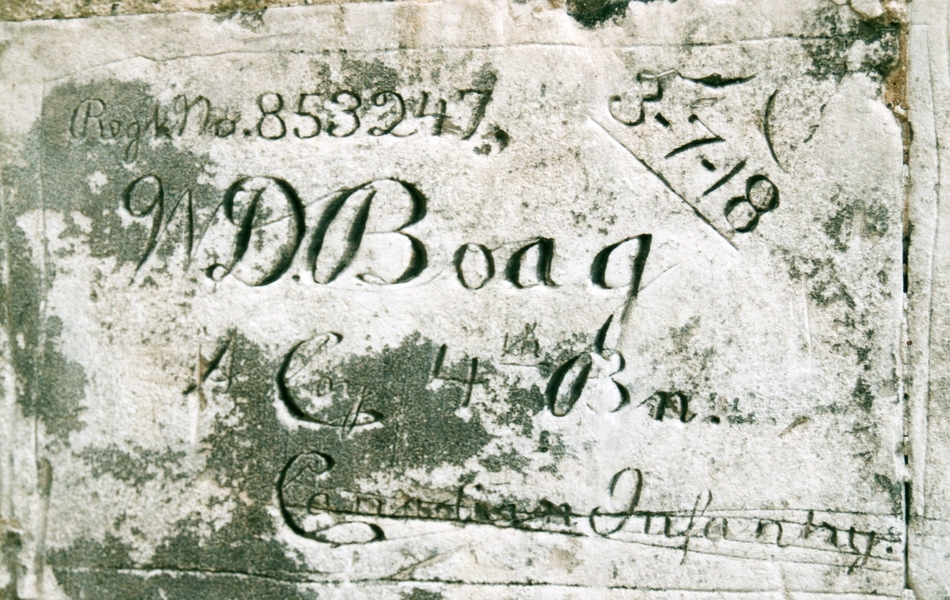 Regt. No. 853247.
3-7-18
W.D. Boag
A Coy 4th Bn.
Canadian Infantry.